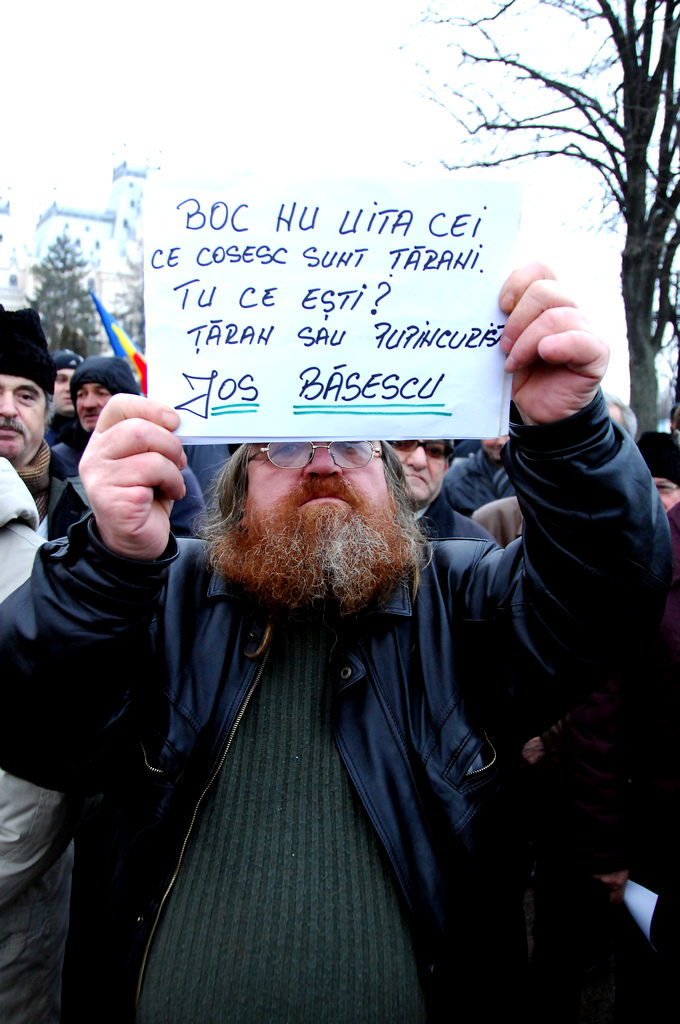 BOC NU UITA CEI
CE COSESC SUNT ȚĂRANI.
TU CE EȘTI?
ȚĂRAN SAU PUPINCURIST
JOS BĂSESCU